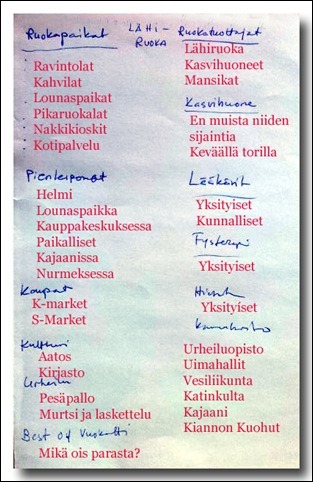 Ruokapaikat
Ravintolat
Kahvilat
Lounaspaikat
Pikaruokalat
Nakkikioskit
Kotipalvelu
Pienleipomot
Helmi
Lounaspaikka
Kauppakeskuksessa
Paikalliset
Kajaanissa
Nurmeksessa
Kaupat
K-market
S-Market
Kulttuuri
Aatos
Kirjasto
Urheilu
Pesäpallo
Murtsi ja laskettelu
Best of Vuokatti
Mikä ois parasta?
LÄHI-
RUOKA
Ruokatuottajat
Lähiruoka
Kasvihuoneet
Mansikat
Kasvihuone
En muista niiden
sijaintia
Keväällä torilla
Lääkärit
Yksityiset
Kunnalliset
Fysterapi
Yksityiset
Yksityiset
Urheiluopisto
Uimahallit
Vesiliikunta
Katinkulta
Kajaani
Kiannon Kuohut